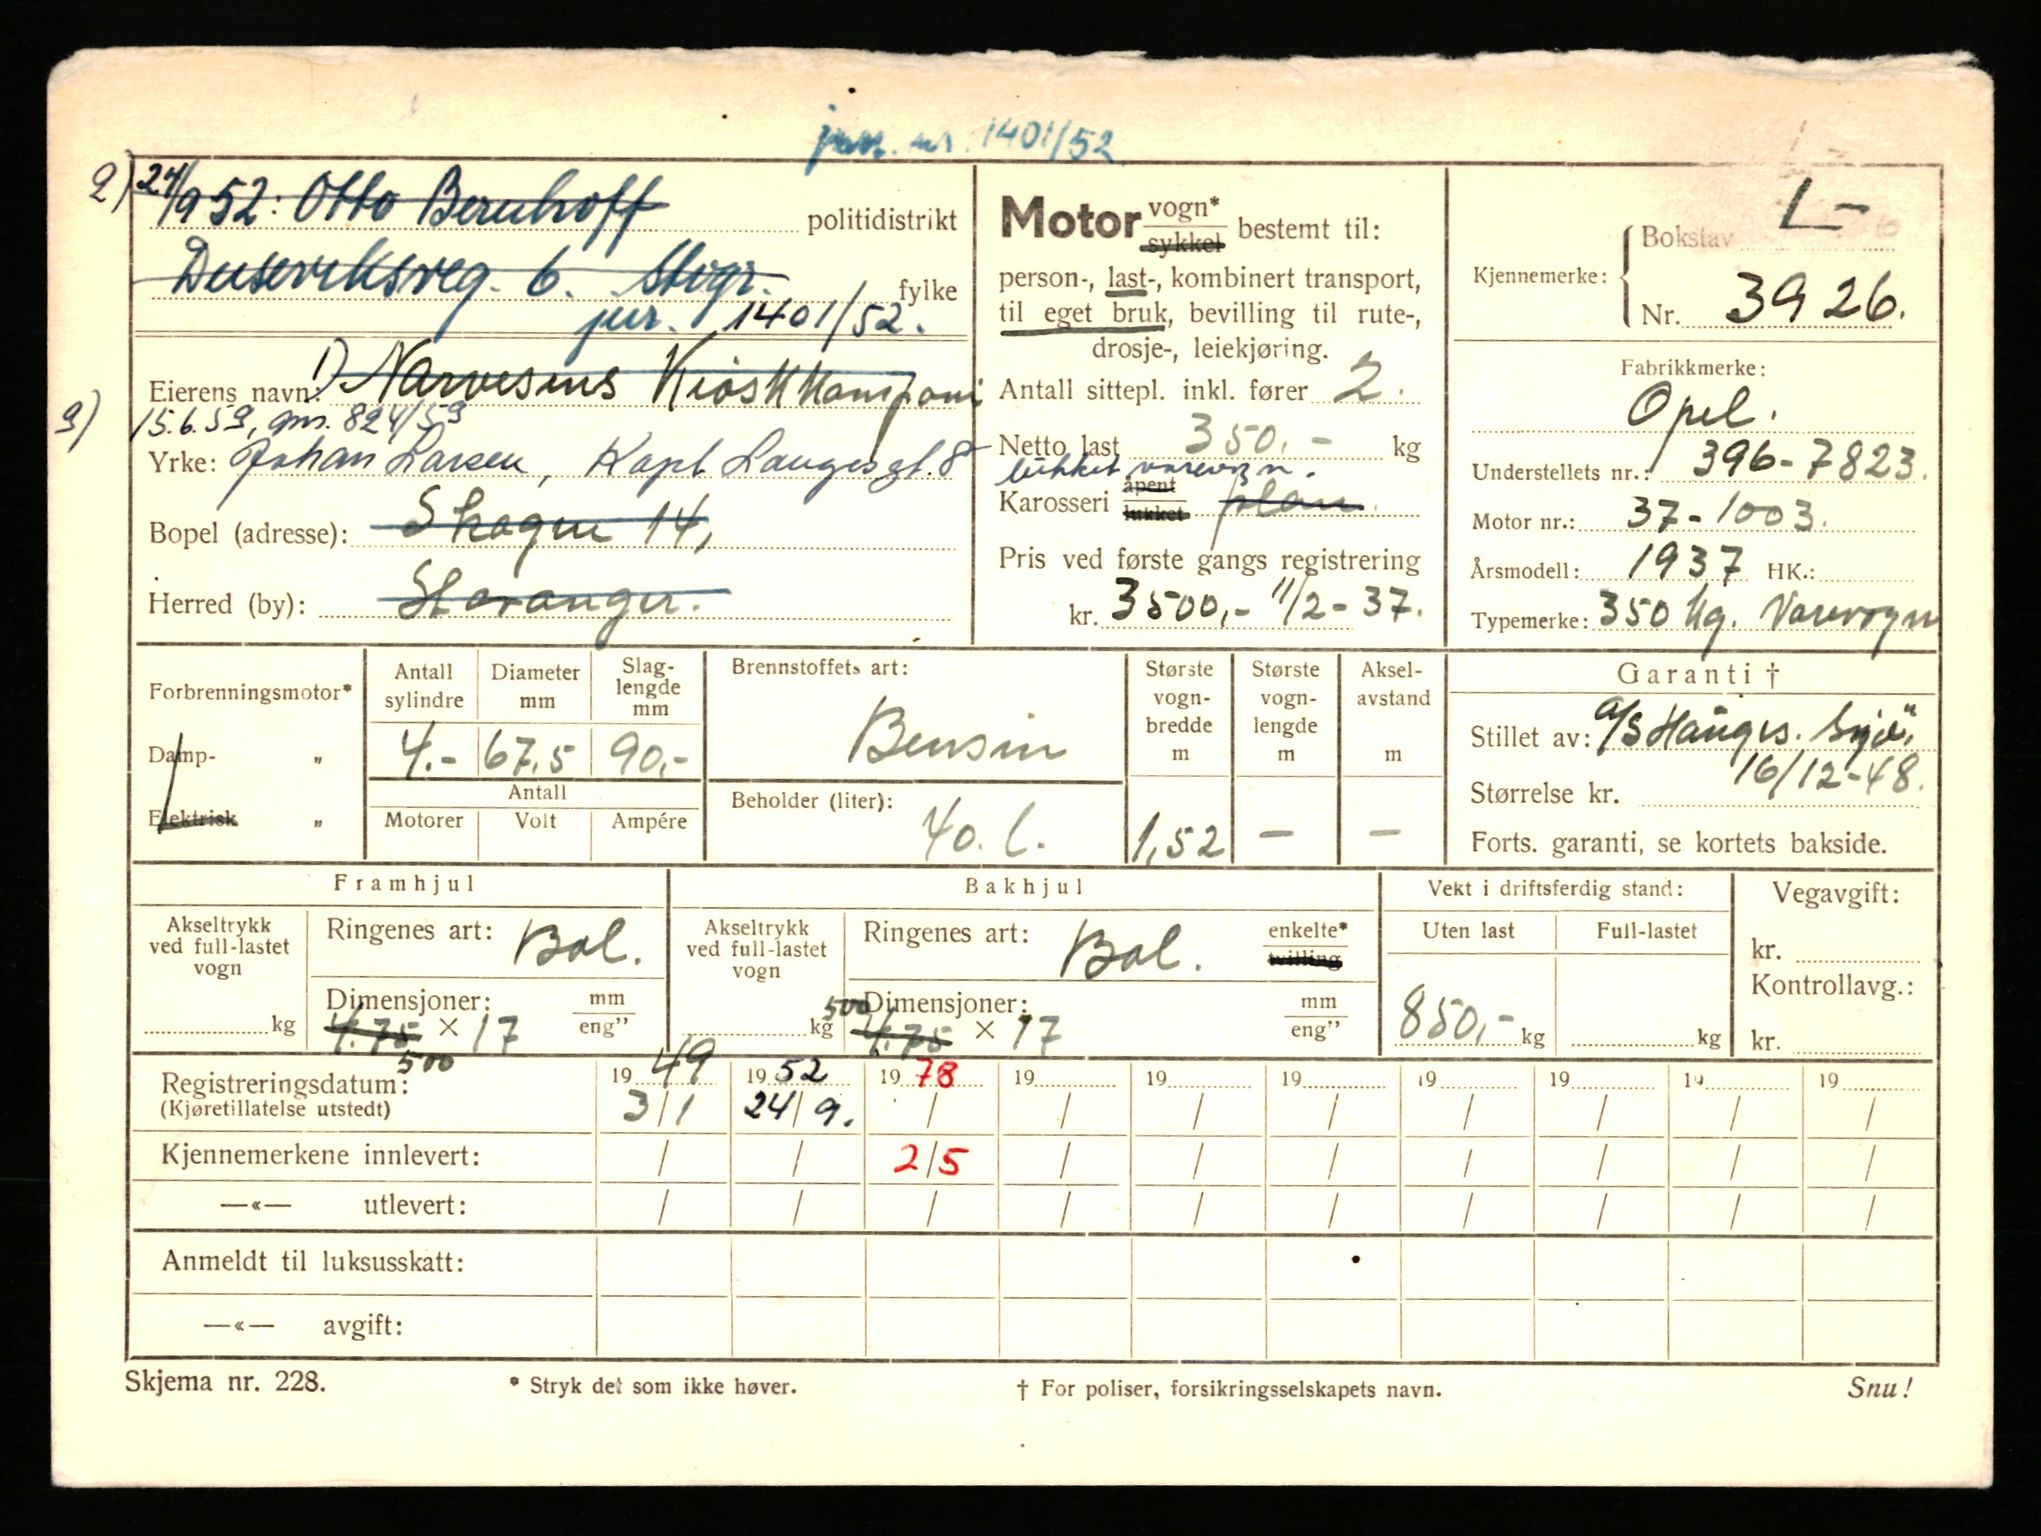 jour. nr. 1401/52
2) 24/9 52: Otto Bernhoff politidistrikt
Dusaviksveg. 6. Stvgr. fylke
jnr. 1401/52.
Eierens navn: 1) Narvesens Kioskkompani
3) 15.6.59, jnr. 824/59
Yrke: Johan Larsen, Kapt. Langesgt. 8
Bopel (adresse): Skagen 14,
Herred (by): Stavanger.
Motor vogn* sykkel bestemt til:
person-, last-, kombinert transport,
til eget bruk, bevilling til rute-,
drosje-, leiekjøring.
Antall sittepl. inkl. fører 2.
Netto last 350,- kg
lukket varevogn.
Karosseri åpent lukket plan
Pris ved første gangs registrering
kr. 3500,- 11/2-37.
L-
Kjennemerke: { Bokstav
Nr. 3926.
Fabrikkmerke:
Opel.
Understellets nr.: 396-7823.
Motor nr.: 37-1003.
Årsmodell: 1937 HK.:
Typemerke: 350 kg. Varevogn
Forbrenningsmotor*
Damp- „
Elektrisk „
Antall sylindre
Diameter mm
Slag-lengde mm
4.- 67,5 90,-
Antall
Motorer Volt Ampére
Brennstoffets art:
Bensin
Beholder (liter):
40. l.
Største vogn-bredde m
1,52
Største vogn-lengde m
—
Aksel-avstand m
—
Garanti †
Stillet av: A/S Hauges.
16/12-48.
Størrelse kr.
Forts. garanti, se kortets bakside.
Framhjul
Akseltrykk ved full-lastet vogn
kg
Ringenes art: Bal.
Dimensjoner: mm eng”
4.75 × 17
500
Bakhjul
Akseltrykk ved full-lastet vogn
kg
Ringenes art: Bal. enkelte* tvilling
500 Dimensjoner: mm eng”
4.75 × 17
Vekt i driftsferdig stand:
Uten last Full-lastet
850,- kg kg
Vegavgift:
kr.
Kontrollavg.:
kr.
Registreringsdatum: 1949 1952 1978 19 19 19 19 19 19 19
(Kjøretillatelse utstedt) 3/1 24/9. / / / / / / / /
Kjennemerkene innlevert: / / 2/5 / / / / / / /
—«— utlevert: / / / / / / / / / /
Anmeldt til luksusskatt:
—«— avgift:
Skjema nr. 228. * Stryk det som ikke høver. † For poliser, forsikringsselskapets navn. Snu!